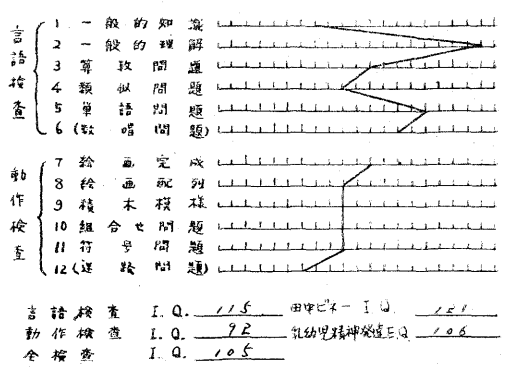 言語検査
1 一般的知識
2 一般的理解
3 算数問題
4 類似問題
5 単語問題
6 (数唱問題)
動作検査
7 絵画完成
8 絵画配列
9 積木模様
10 組合せ問題
11 符号問題
12 (迷路問題)
言語検査 I.Q. 115 田中ビネー I Q. 121
動作検査 I.Q. 92 乳幼児精神発達E.Q. 106
全検査 I.Q. 105